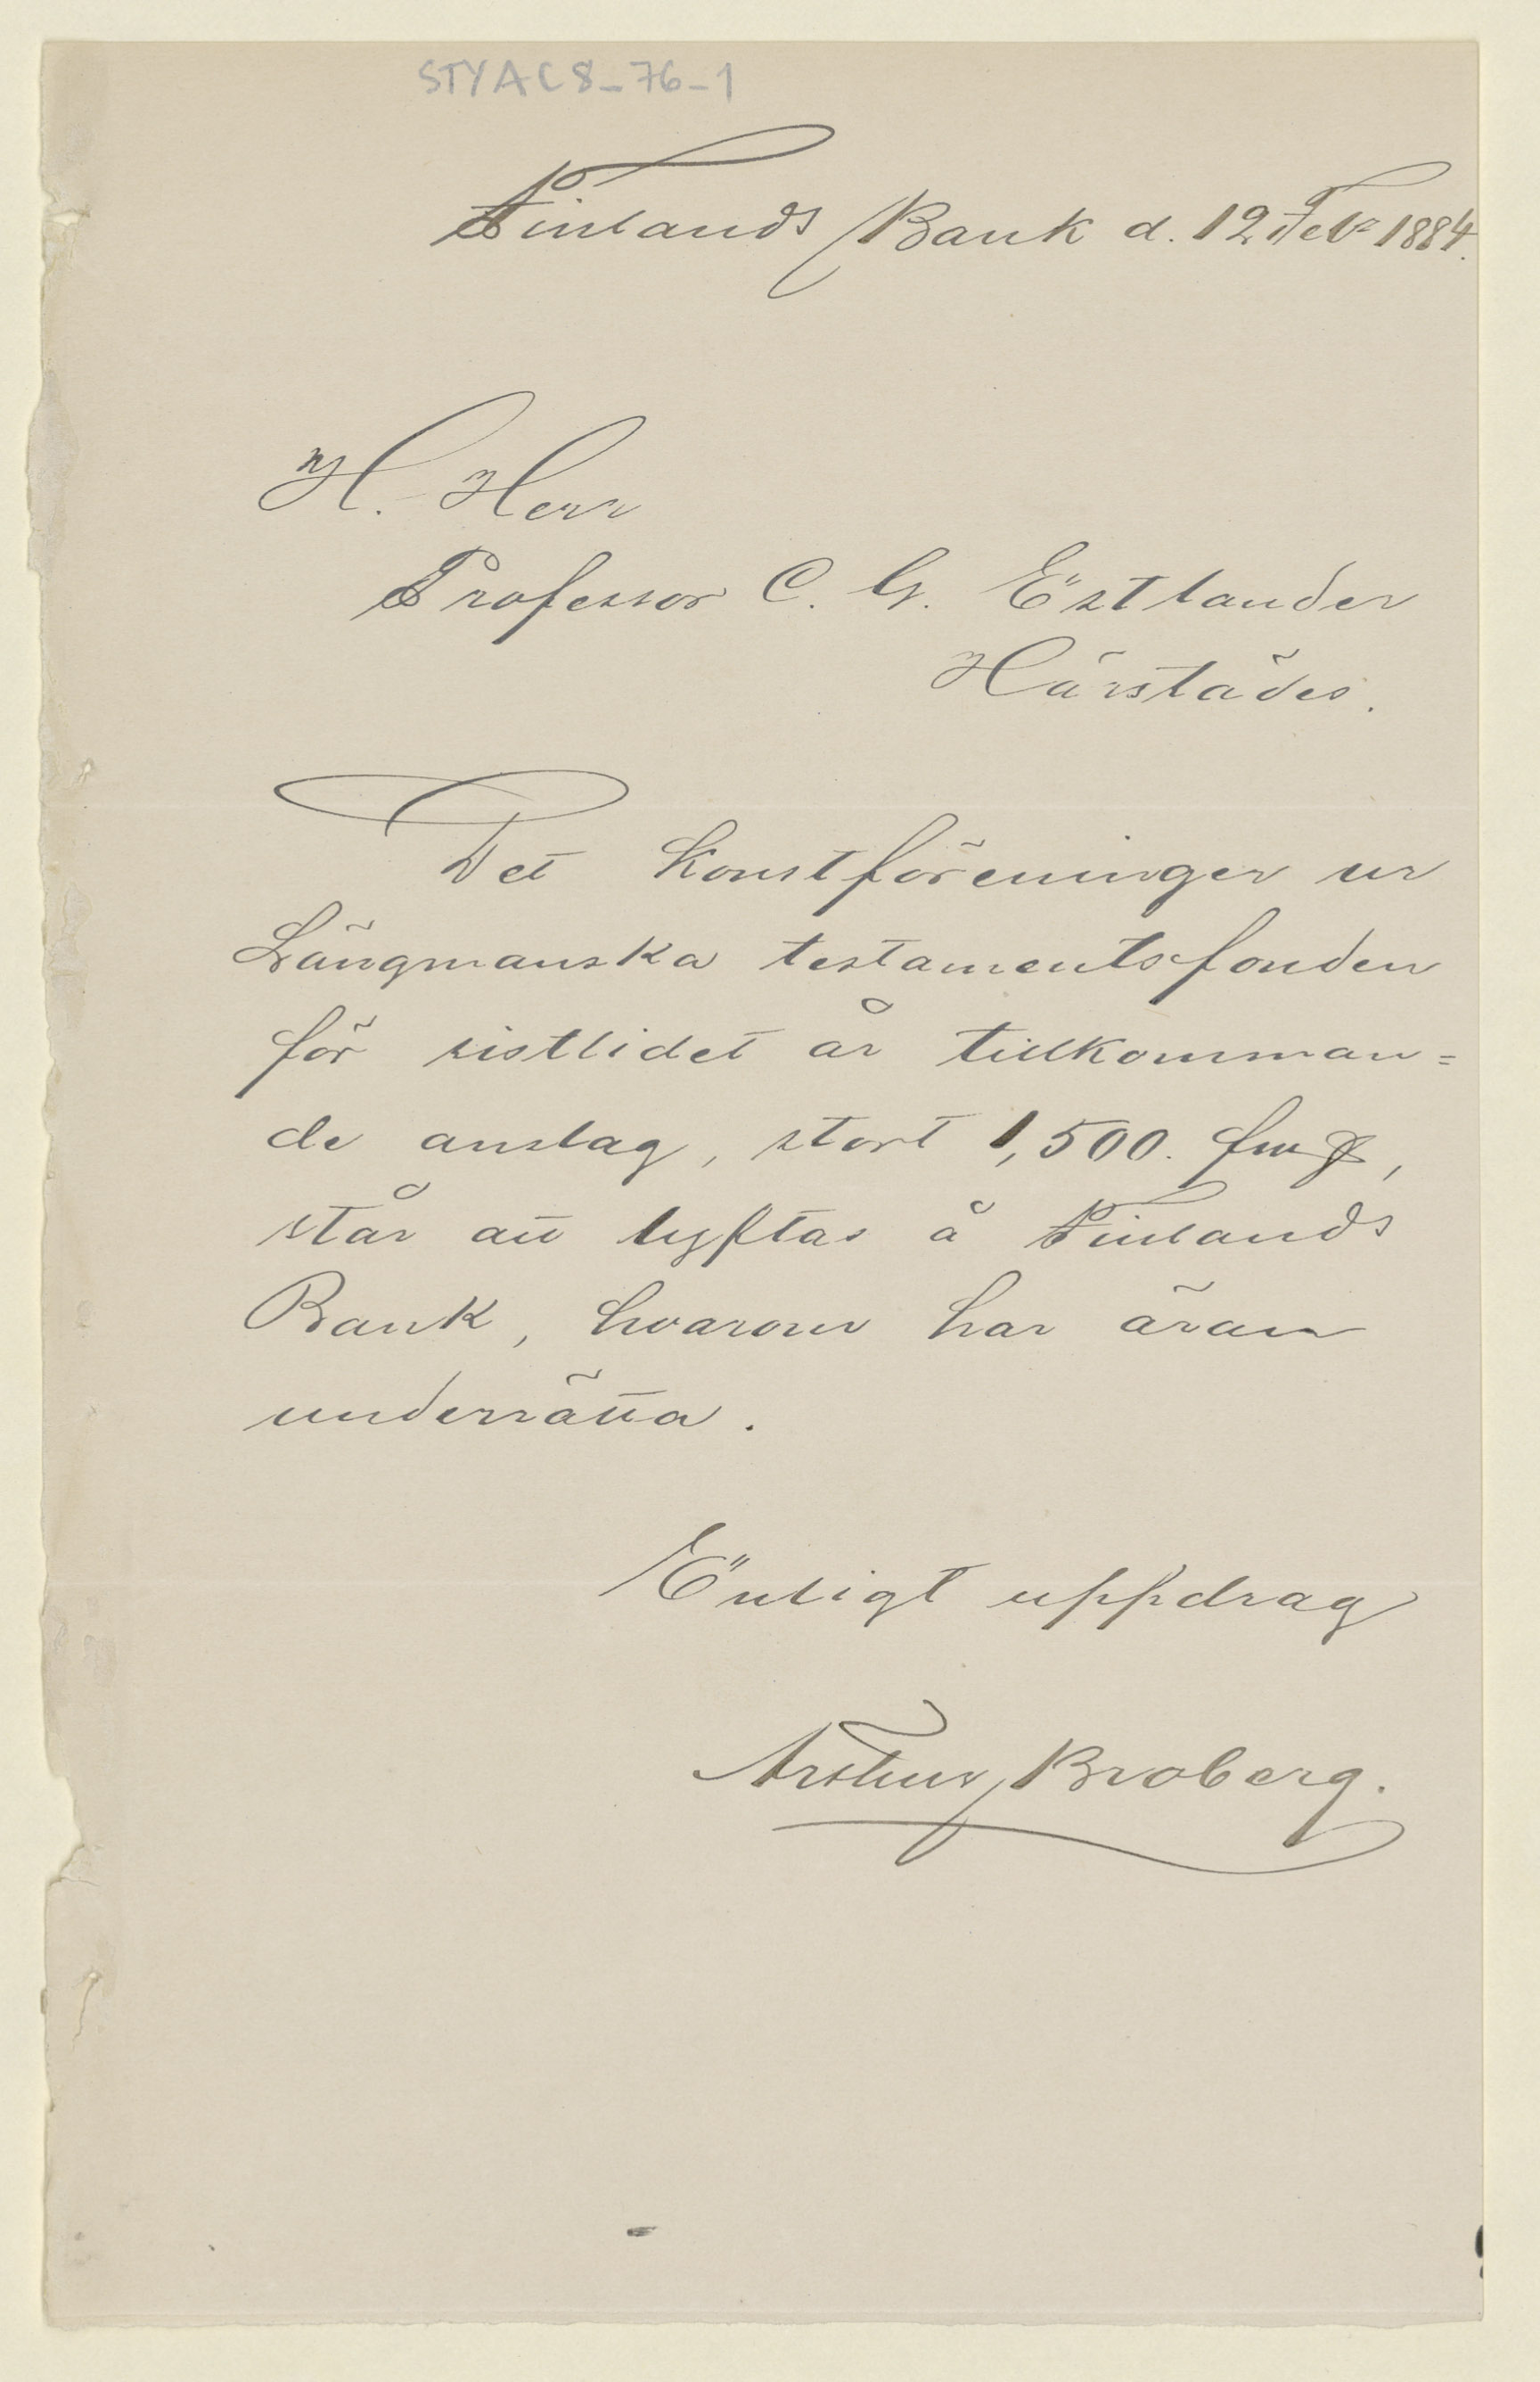 STYAC8_76_1
Finlands Bank d. 12 Feb. 1884.
H. Herr
Professor C. G. Estlander
Härstädes.
Det Konstföreningen ur
Längmanska testamentsfonden
för sistlidet år tillkomman=
de anslag, stort 1,500. fmk,
står att lyftas å Finlands
Bank, hvarom har äran
underrätta.
Enligt uppdrag
Arthur Broberg.